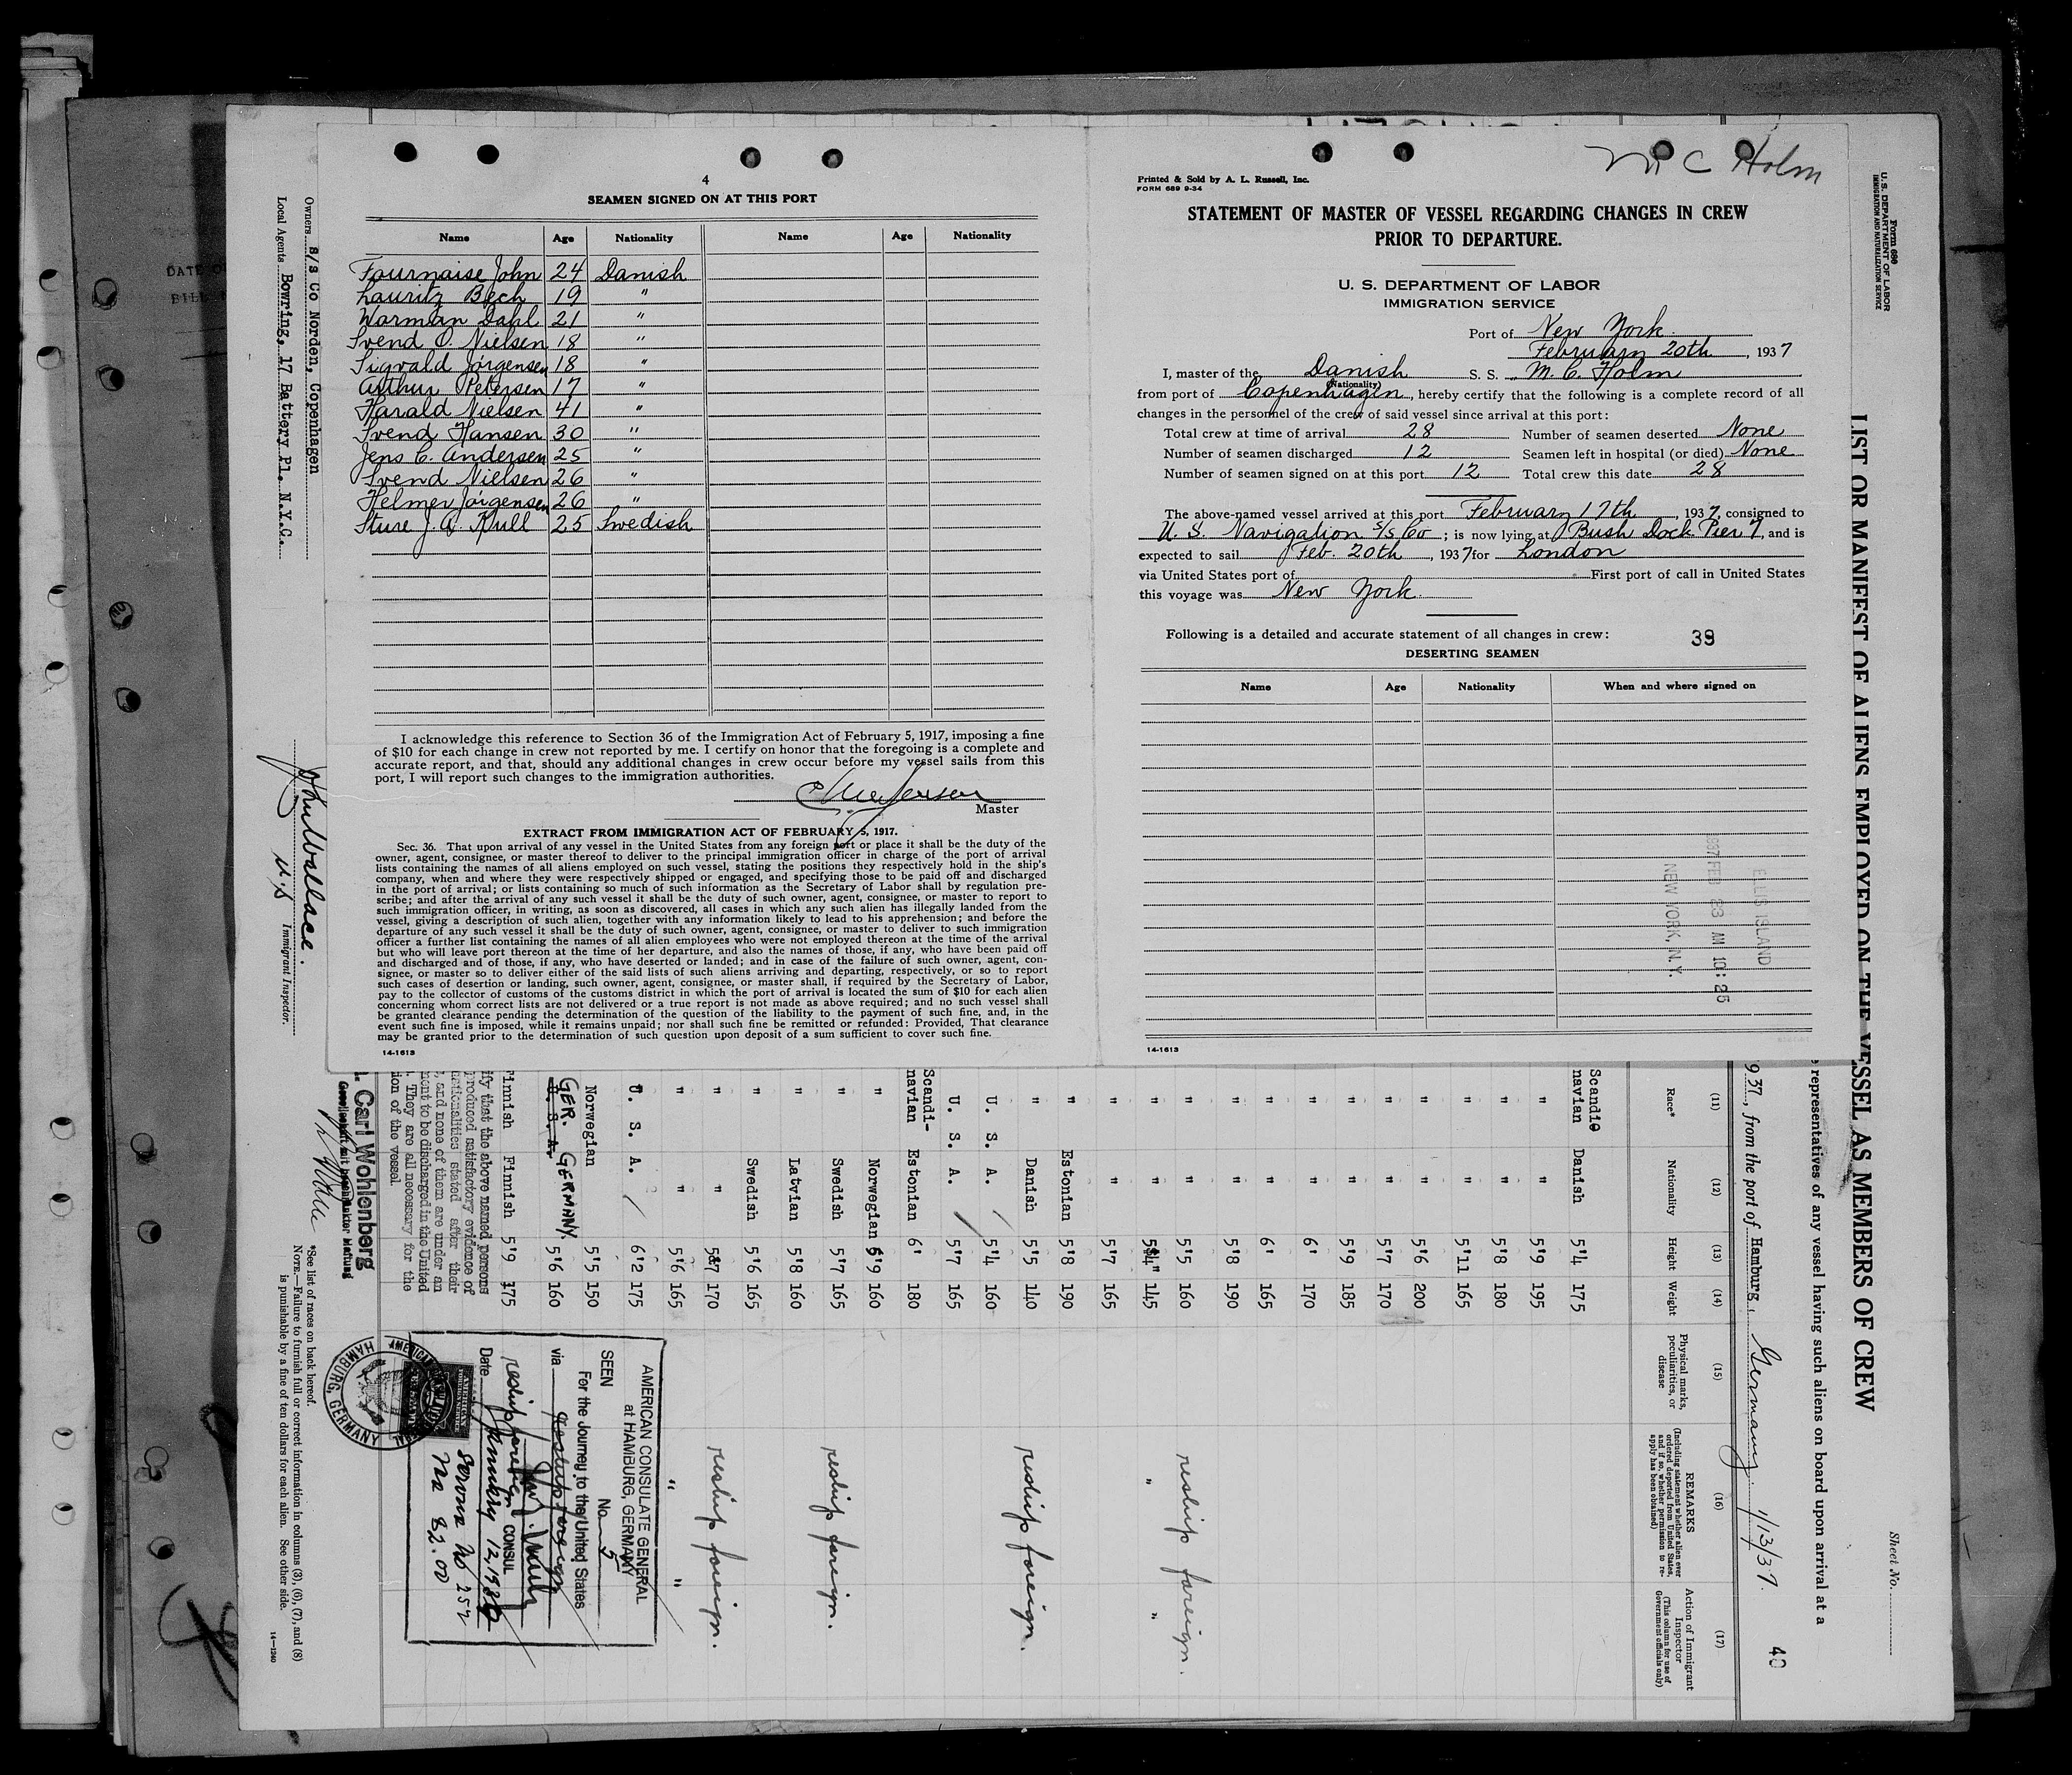 4
SEAMEN SIGNED ON AT THIS PORT
Name Age Nationality Name Age Nationality
Fournaise John 24 Danish
Lauritz Bech 19 "
Warman Dahl 21 "
Svend O. Nielsen 18 "
Sigvald Jörgensen 18 "
Arthur Petersen 17 "
Harald Nielsen 41 "
Svend Hansen 30 "
Jens C. Andersen 25 "
Svend Nielsen 26 "
Helmer Jörgensen 26 "
Sture J. A. Krull 25 Swedish
I acknowledge this reference to Section 36 of the Immigration Act of February 5, 1917, imposing a fine
of $10 for each change in crew not reported by me. I certify on honor that the foregoing is a complete and
accurate report, and that, should any additional changes in crew occur before my vessel sails from this
port, I will report such changes to the immigration authorities.
Master
EXTRACT FROM IMMIGRATION ACT OF FEBRUARY 5, 1917.
Sec. 36. That upon arrival of any vessel in the United States from any foreign port or place it shall be the duty of the
owner, agent, consignee, or master thereof to deliver to the principal immigration officer in charge of the port of arrival
lists containing the names of all aliens employed on such vessel, stating the positions they respectively hold in the ship's
company, when and where they were respectively shipped or engaged, and specifying those to be paid off and discharged
in the port of arrival; or lists containing so much of such information as the Secretary of Labor shall by regulation pre-
scribe; and after the arrival of any such vessel it shall be the duty of such owner, agent, consignee, or master to report to
such immigration officer, in writing, as soon as discovered, all cases in which any such alien has illegally landed from the
vessel, giving a description of such alien, together with any information likely to lead to his apprehension; and before the
departure of any such vessel it shall be the duty of such owner, agent, consignee, or master to deliver to such immigration
officer a further list containing the names of all alien employees who were not employed thereon at the time of the arrival
but who will leave port thereon at the time of her departure, and also the names of those, if any, who have been paid off
and discharged and of those, if any, who have deserted or landed; and in case of the failure of such owner, agent, con-
signee, or master so to deliver either of the said lists of such aliens arriving and departing, respectively, or so to report
such cases of desertion or landing, such owner, agent, consignee, or master shall, if required by the Secretary of Labor,
pay to the collector of customs of the customs district in which the port of arrival is located the sum of $10 for each alien
concerning whom correct lists are not delivered or a true report is not made as above required; and no such vessel shall
be granted clearance pending the determination of the question of the liability to the payment of such fine, and, in the
event such fine is imposed, while it remains unpaid; nor shall such fine be remitted or refunded: Provided, That clearance
may be granted prior to the determination of such question upon deposit of a sum sufficient to cover such fine.
14-1613
M C Holm
Printed & Sold by A. L. Russell, Inc.
FORM 689 9-34
STATEMENT OF MASTER OF VESSEL REGARDING CHANGES IN CREW
PRIOR TO DEPARTURE.
U. S. DEPARTMENT OF LABOR
IMMIGRATION SERVICE
Port of New York
February 20th, 1937
I, master of the Danish S. S. M. C. Holm
(Nationality)
from port of Copenhagen, hereby certify that the following is a complete record of all
changes in the personnel of the crew of said vessel since arrival at this port:
Total crew at time of arrival 28 Number of seamen deserted None
Number of seamen discharged 12 Seamen left in hospital (or died) None
Number of seamen signed on at this port 12 Total crew this date 28
The above-named vessel arrived at this port February 17th, 1937, consigned to
U. S. Navigation S/S Co; is now lying at Bush Dock Pier 7, and is
expected to sail Feb. 20th, 1937 for London
via United States port of First port of call in United States
this voyage was New York.
Following is a detailed and accurate statement of all changes in crew: 39
DESERTING SEAMEN
Name Age Nationality When and where signed on
ELLIS ISLAND
1937 FEB 23 AM 10:25
NEW YORK, N.Y.
14-1613
Form 680
U. S. DEPARTMENT OF LABOR
IMMIGRATION AND NATURALIZATION SERVICE
Sheet No.
LIST OR MANIFEST OF ALIENS EMPLOYED ON THE VESSEL AS MEMBERS OF CREW
representatives of any vessel having such aliens on board upon arrival at a
1937, from the port of Hamburg, Germany. 1/13/37. 40
(11) (12) (13) (14) (15) (16) (17)
Race* Nationality Height Weight Physical marks, peculiarities, or disease REMARKS (Including statement whether alien ever ordered deported from United States, and if so, whether permission to re-apply has been obtained) Action of Immigrant Inspector (This column for use of Government officials only)
Scandinavian Danish 5'4 175
" " 5'9 195
" " 5'8 180
" " 5'11 165
" " 5'6 200
" " 5'7 170
" " 5'9 185
" " 6' 170
" " 6' 165
" " 5'8 190
" " 5'5 160 reship foreign.
" " 5'4" 145 " "
" " 5'7 165
" Estonian 5'8 190
" Danish 5'5 140 reship foreign.
U. S. A. 5'4 160
U. S. A. 5'7 165
Scandi-navian Estonian 6' 180
" Norwegian 5'9 160
" Swedish 5'7 165 reship foreign.
" Latvian 5'8 160
" Swedish 5'6 165
" " 5'7 170 reship foreign.
" " 5'6 165 " "
U. S. A. 6'2 175
Norwegian 5'5 150
GER. GERMANY. U. S. A. 5'6 160
Finnish Finnish 5'9 175
fy that the above named persons
produced satisfactory evidence of
nationalities stated after their
, and none of them are under an
ment to be discharged in the United
. They are all necessary for the
ion of the vessel.
Carl Wohlenberg
Gesellschaft mit beschränkter Haftung
AMERICAN CONSULATE GENERAL
at HAMBURG, GERMANY
SEEN No. 5
For the Journey to the United States
via reship foreign
reship foreign
CONSUL
Date January 12, 1937
Service No 252
HAMBURG, GERMANY
*See list of races on back hereof.
NOTE.—Failure to furnish full or correct information in columns (3), (6), (7), and (8)
is punishable by a fine of ten dollars for each alien. See other side.
14—1240
Owners S/S Co Norden, Copenhagen
Local Agents Bowring, 17 Battery Pl. N.Y.C.
John Wallace.
Immigrant Inspector.